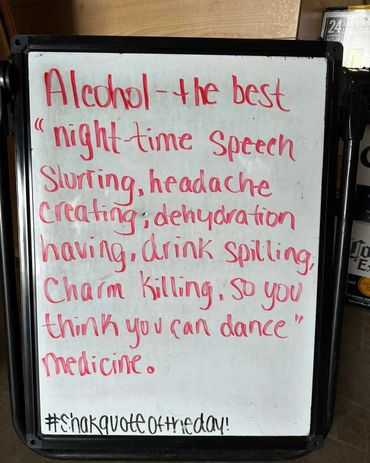 Alcohol - the best
"night-time speech
slurring, headache
creating, dehydration
having, drink spilling,
Charm killing, so you
think you can dance"
medicine.
#shakquoteoftheday!
24
Co
Ex